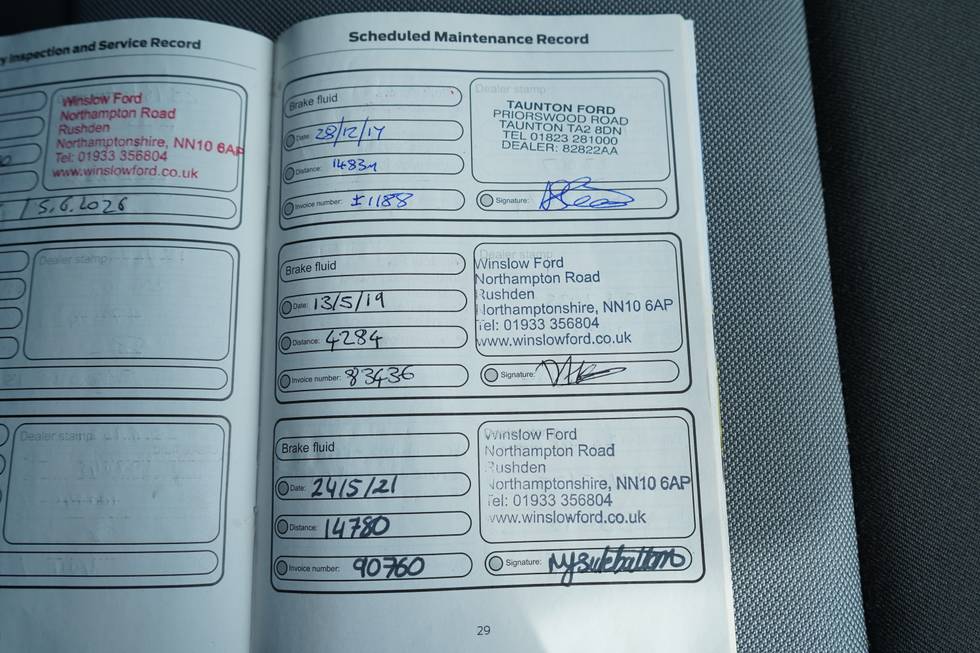 y Inspection and Service Record
Winslow Ford
Northampton Road
Rushden
Northamptonshire, NN10 6AP
Tel: 01933 356804
www.winslowford.co.uk
5.6.2026
Dealer stamp
Dealer stamp
Scheduled Maintenance Record
Brake fluid
Date: 28/12/17
Distance: 1483m
Invoice number: £1188
Dealer stamp
TAUNTON FORD
PRIORSWOOD ROAD
TAUNTON TA2 8DN
TEL 01823 281000
DEALER: 82822AA
Signature:
Brake fluid
Date: 13/5/19
Distance: 4284
Invoice number: 83436
Dealer stamp
Winslow Ford
Northampton Road
Rushden
Northamptonshire, NN10 6AP
Tel: 01933 356804
www.winslowford.co.uk
Signature:
Brake fluid
Date: 24/5/21
Distance: 14780
Invoice number: 90760
Winslow Ford
Northampton Road
Rushden
Northamptonshire, NN10 6AP
Tel: 01933 356804
www.winslowford.co.uk
Signature:
29